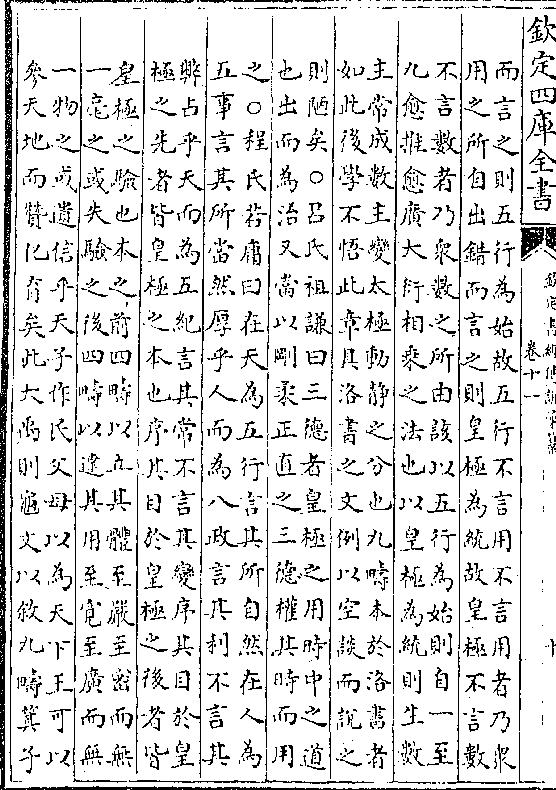 欽定四庫全書
欽定書經傳說彙纂
卷十一
而言之則五行為始故五行不言用不言用者乃衆
用之所自出錯而言之則皇極為統故皇極不言數
不言數者乃衆數之所由該以五行為始則自一至
九愈推愈廣大衍相乗之法也以皇極為統則生數
主常成數主變太極動静之分也九疇本於洛書者
如此後學不悟此章具洛書之文例以空談而說之
則陋矣○吕氏祖謙曰三徳者皇極之用時中之道
也出而為治又當以剛柔正直之三徳權其時而用
之○程氏若庸曰在天為五行言其所自然在人為
五事言其所當然厚乎人而為八政言其利不言其
弊占乎天而為五紀言其常不言其變序其目於皇
極之先者皆皇極之本也序其目於皇極之後者皆
皇極之驗也本之前四疇以立其體至嚴至密而無
一毫之或失驗之後四疇以達其用至寛至廣而無
一物之或遺信乎天子作民父母以為天下王可以
參天地而賛化育矣此大禹則龜文以敘九疇箕子